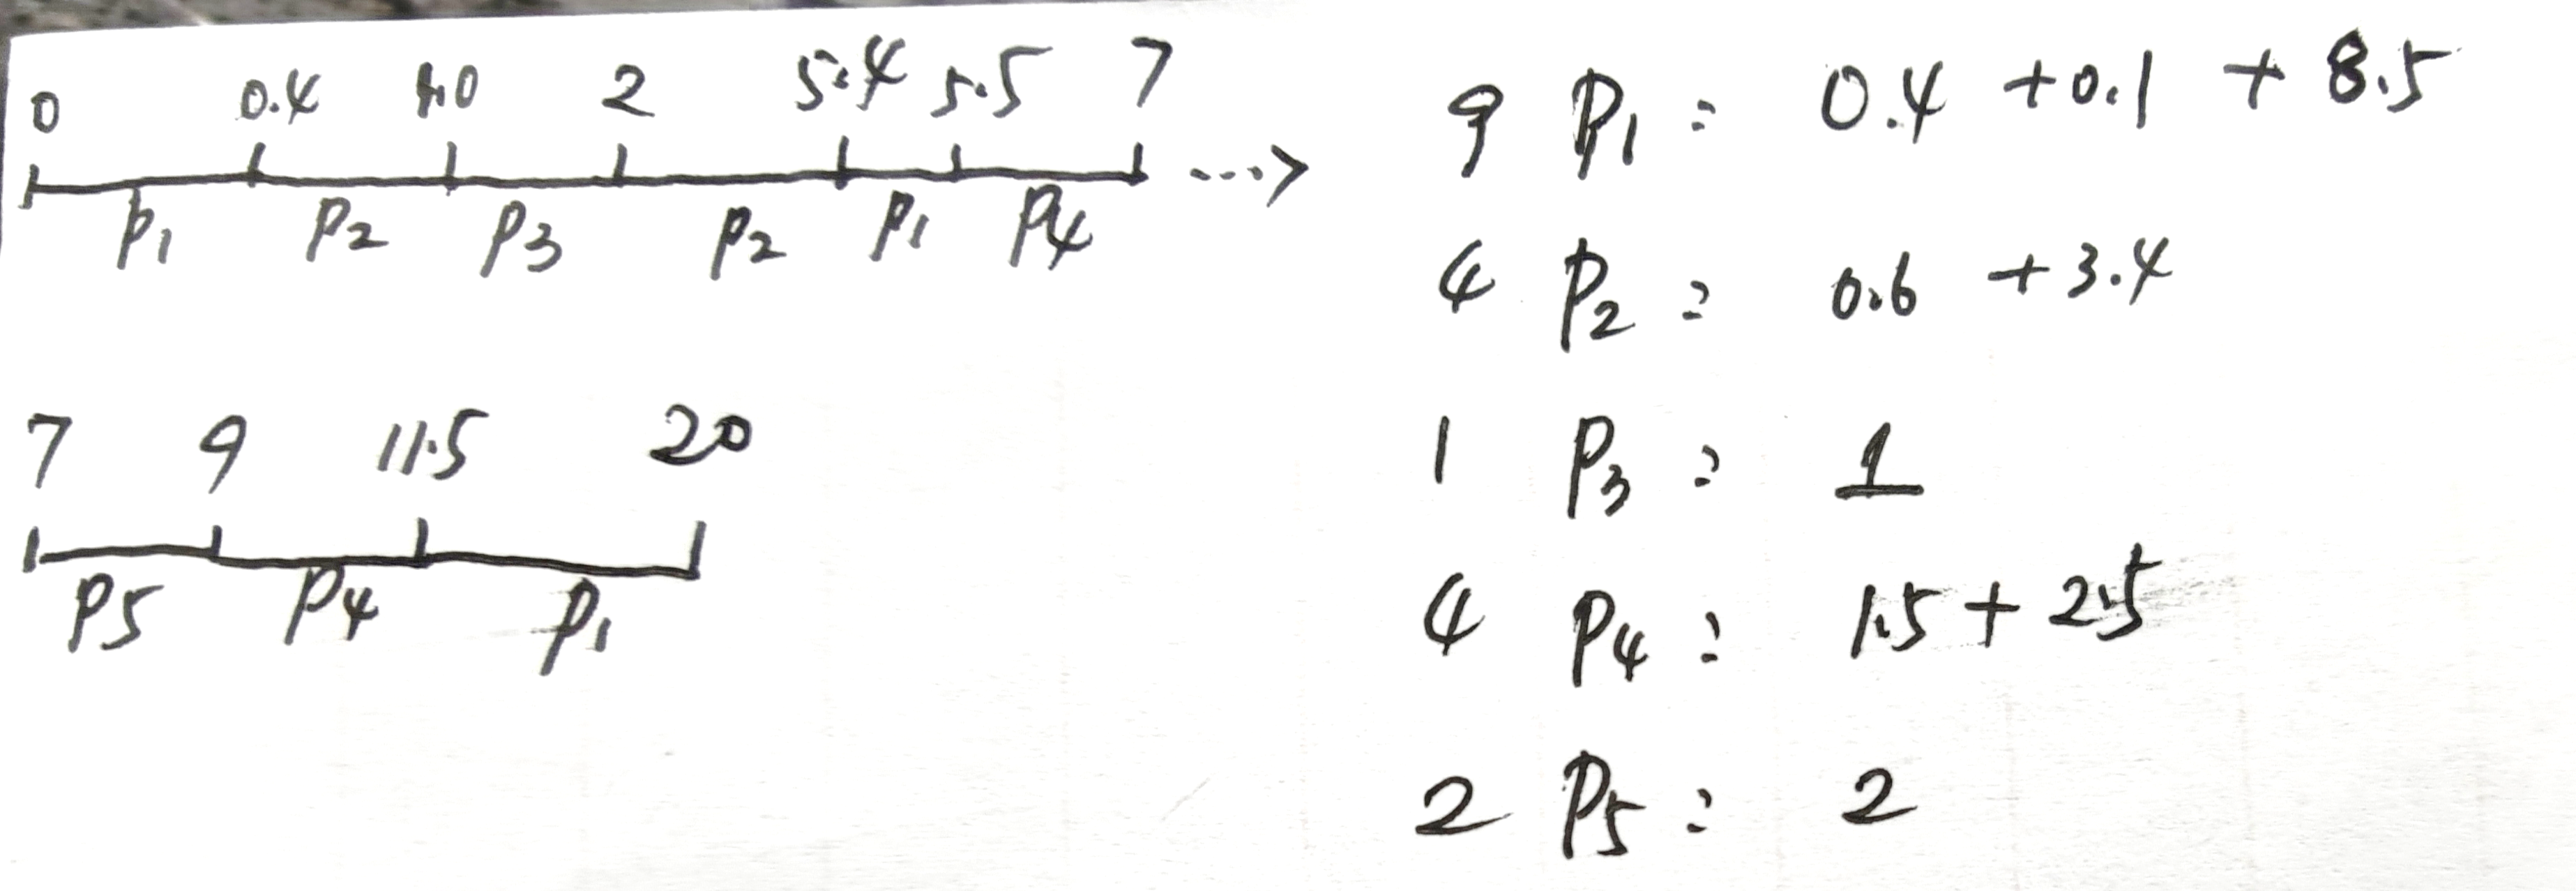 0 0.4 1.0 2 5.4 5.5 7
P1 P2 P3 P2 P1 P4 ...>
7 9 11.5 20
P5 P4 P1
9 P1: 0.4 +0.1 + 8.5
4 P2: 0.6 +3.4
1 P3: 1
4 P4: 1.5 + 2.5
2 P5: 2